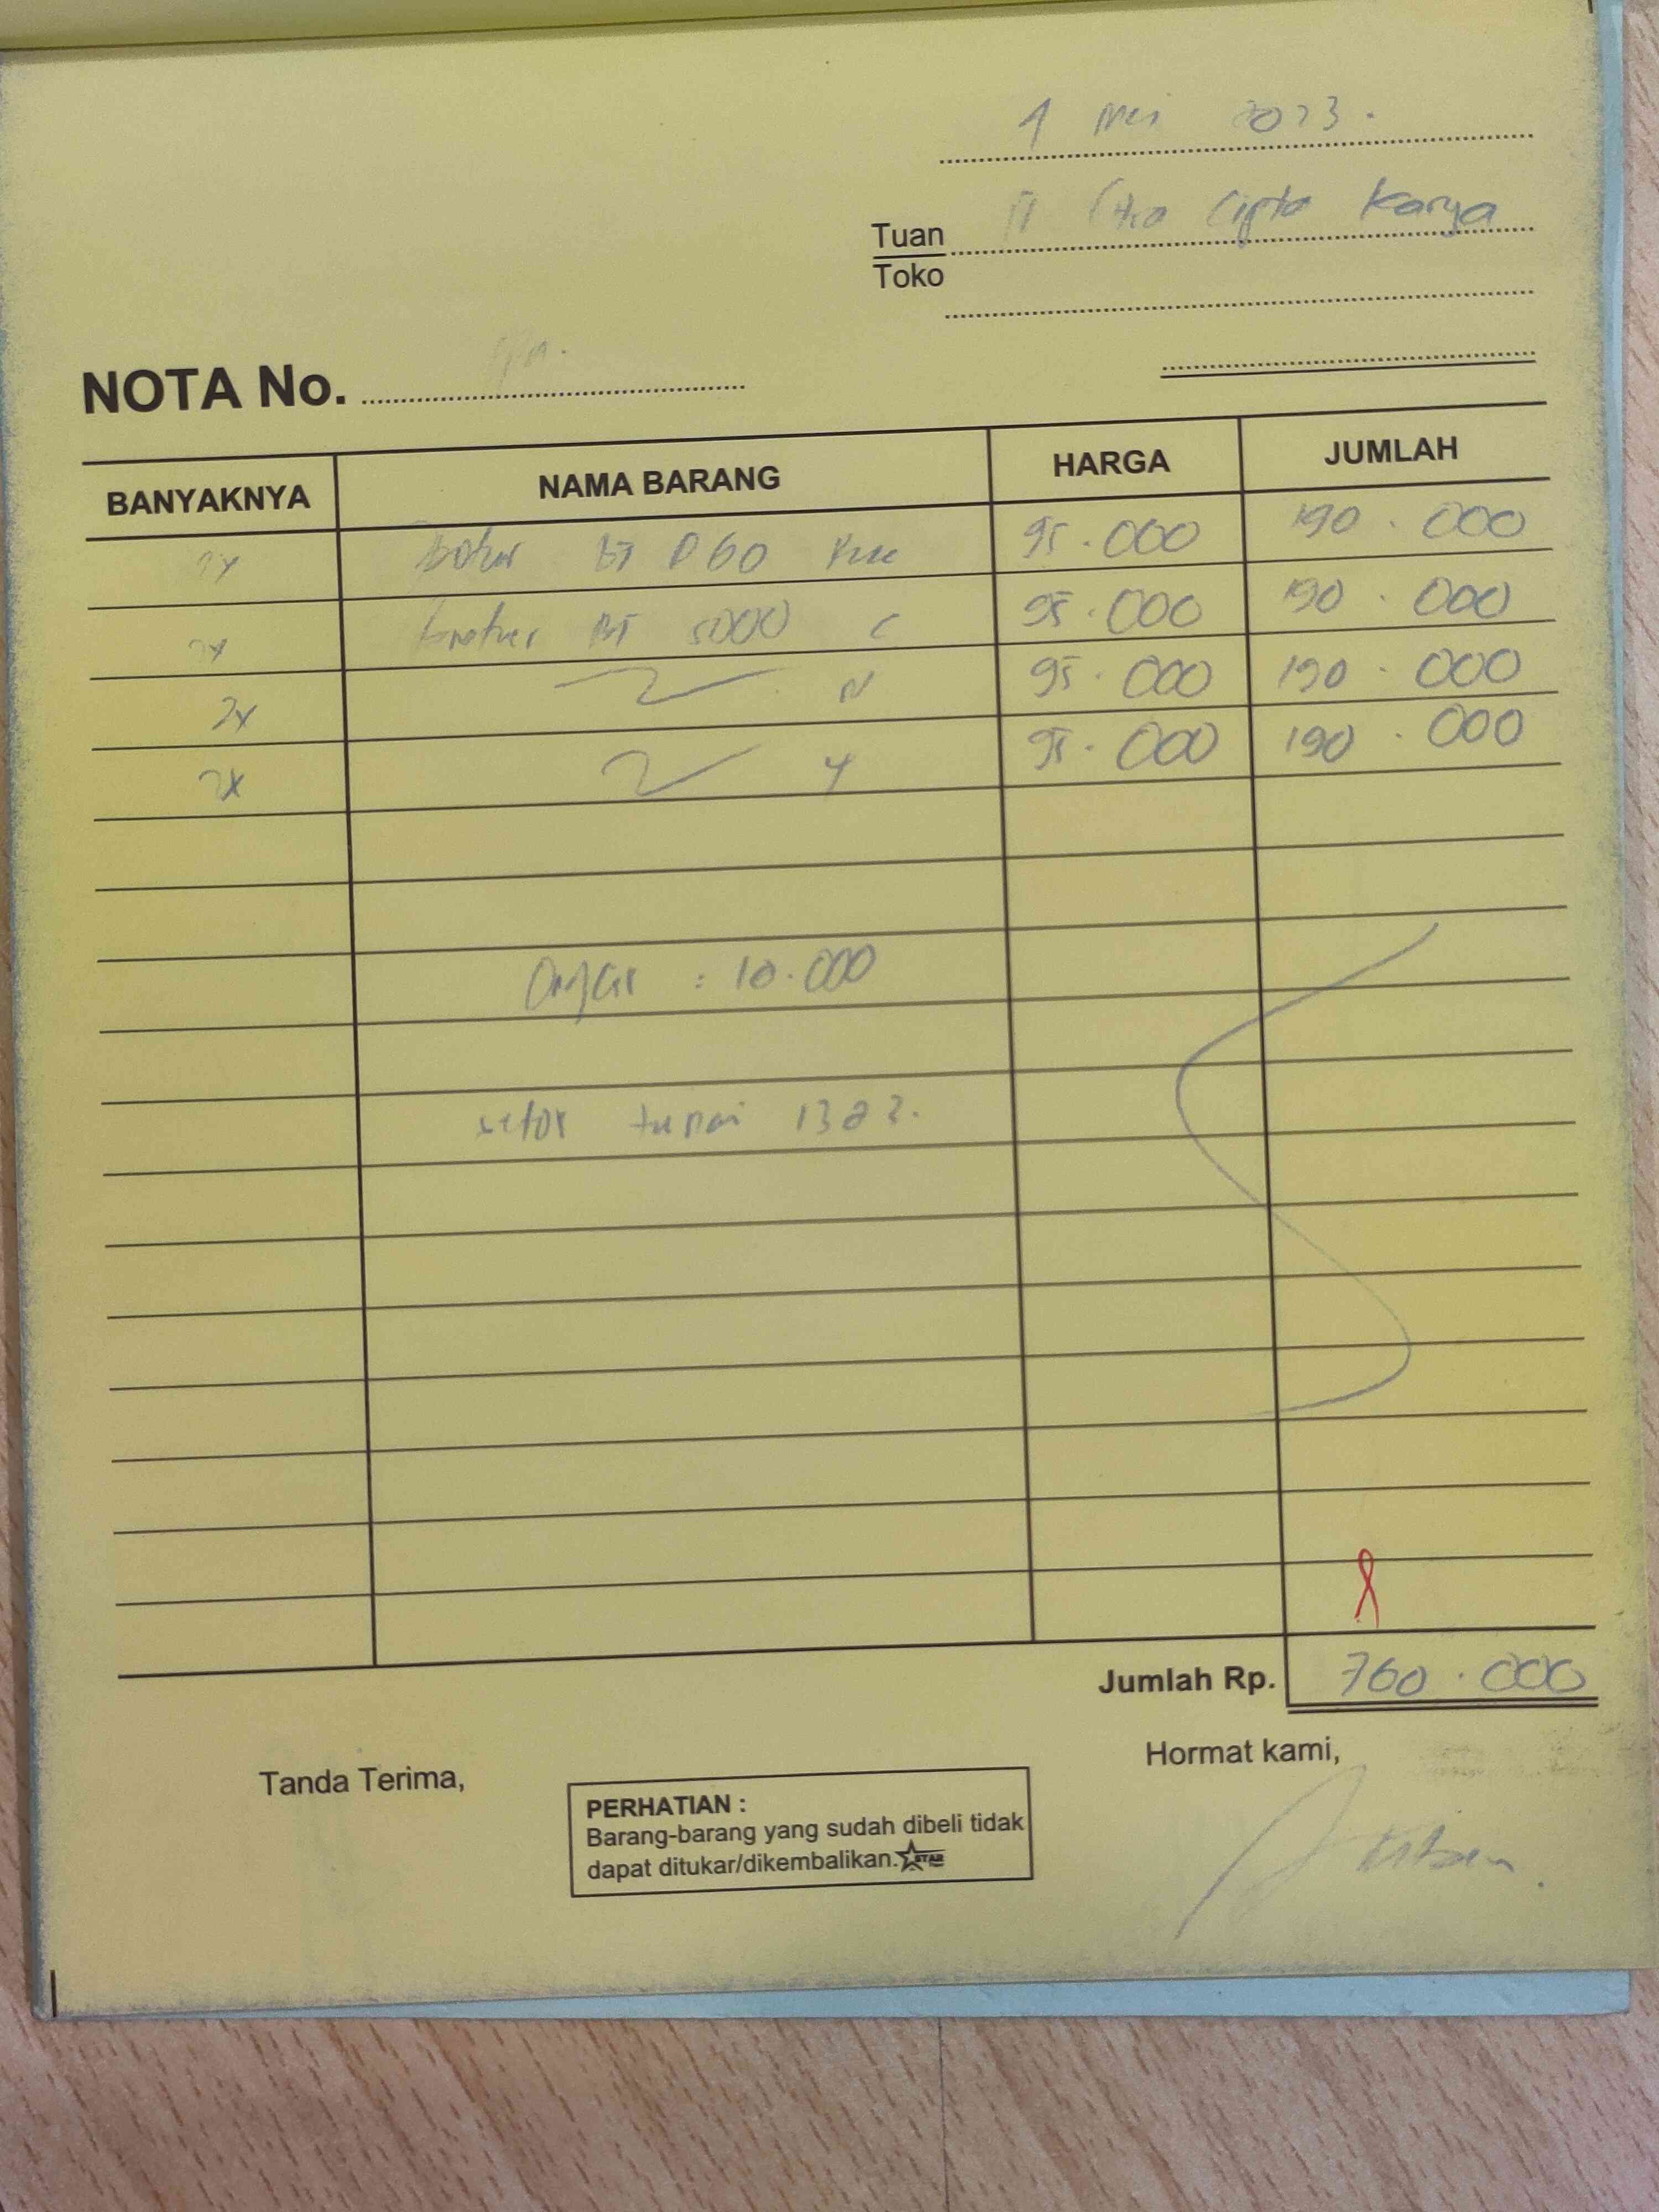 1 Mei 2023.
Tuan Cipta Karya
Toko
NOTA No.
BANYAKNYA NAMA BARANG HARGA JUMLAH
2x BT D60 95.000 190.000
2x Brother BT 5000 C 95.000 190.000
2x M 95.000 190.000
2x Y 95.000 190.000
Ongkir : 10.000
setor tunai
Jumlah Rp. 760.000
Tanda Terima,
Hormat kami,
PERHATIAN :
Barang-barang yang sudah dibeli tidak
dapat ditukar/dikembalikan. STAR